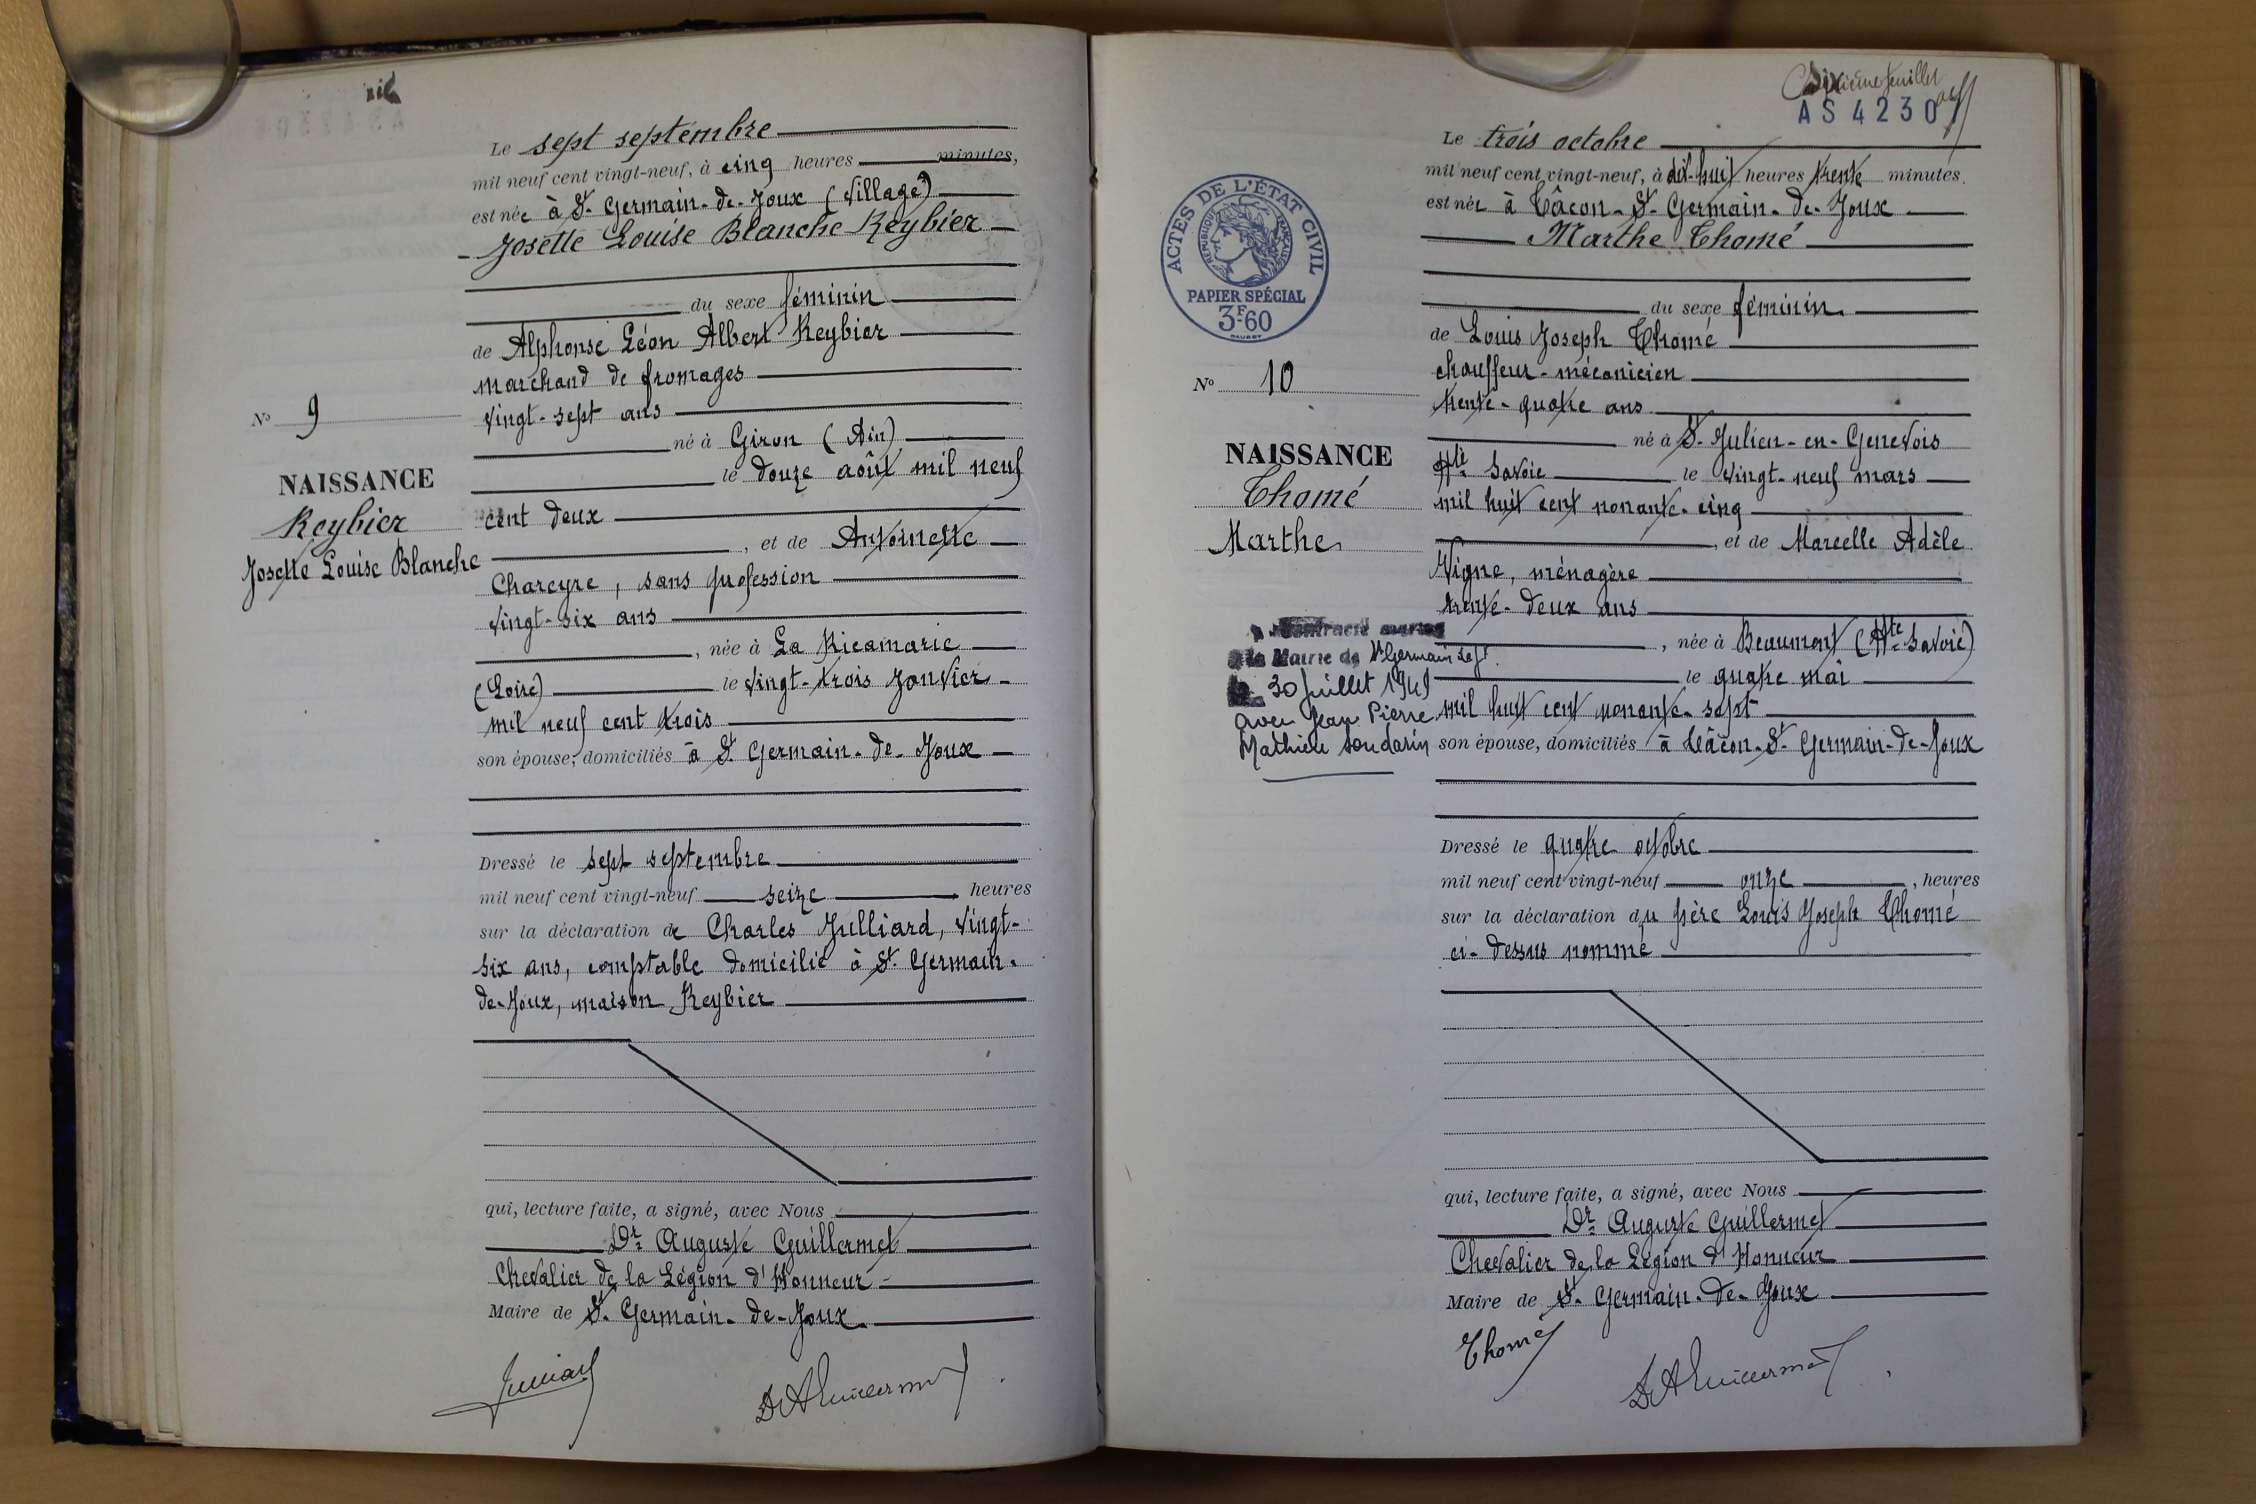 Le sept septembre
mil neuf cent vingt-neuf, à cinq heures minutes,
est née à St. Germain-de-Joux (Village)
Josette Louise Blanche Reybier
du sexe féminin
de Alphonse Léon Albert Reybier
marchand de fromages
vingt-sept ans
né à Giron (Ain)
le douze août mil neuf
cent deux
, et de Antoinette
Chareyre, sans profession
vingt-six ans
, née à La Ricamarie
(Loire) le vingt-trois Janvier
mil neuf cent trois
son épouse, domiciliés à St. Germain-de-Joux
N° 9
NAISSANCE
Reybier
Josette Louise Blanche
Dressé le sept septembre
mil neuf cent vingt-neuf seize heures
sur la déclaration de Charles Julliard, vingt-
six ans, comptable domicilié à St. Germain-
de-Joux, maison Reybier
qui, lecture faite, a signé, avec Nous
Dr. Auguste Guillermet
Chevalier de la Légion d'Honneur
Maire de St. Germain-de-Joux
DrAGuillermet
feuillet
AS 4230
Le trois octobre
mil neuf cent vingt-neuf, à dix-huit heures trente minutes.
est née à Tâcon-St. Germain-de-Joux
Marthe Thomé
du sexe féminin
de Louis Joseph Thomé
chauffeur-mécanicien
trente-quatre ans
né à St. Julien-en-Genevois
Hte Savoie le vingt-neuf mars
mil huit cent nonante-cinq
, et de Marcelle Adèle
Vigne, ménagère
trente-deux ans
, née à Beaumont (Hte Savoie)
le quatre mai
mil huit cent nonante-sept
son épouse, domiciliés à Tâcon-St. Germain-de-Joux
ACTES DE L'ÉTAT CIVIL
RÉPUBLIQUE FRANÇAISE
PAPIER SPÉCIAL
3F.60
N° 10
NAISSANCE
Thomé
Marthe
a contracté mariage
à la Mairie de St Germain de J.
le 30 Juillet 1949
avec Jean Pierre
Mathieu Soudarin
Dressé le quatre octobre
mil neuf cent vingt-neuf onze, heures
sur la déclaration du père Louis Joseph Thomé
ci-dessus nommé
qui, lecture faite, a signé, avec Nous
Dr. Auguste Guillermet
Chevalier de la Légion d'Honneur
Maire de St. Germain-de-Joux
Thomé
DrAGuillermet